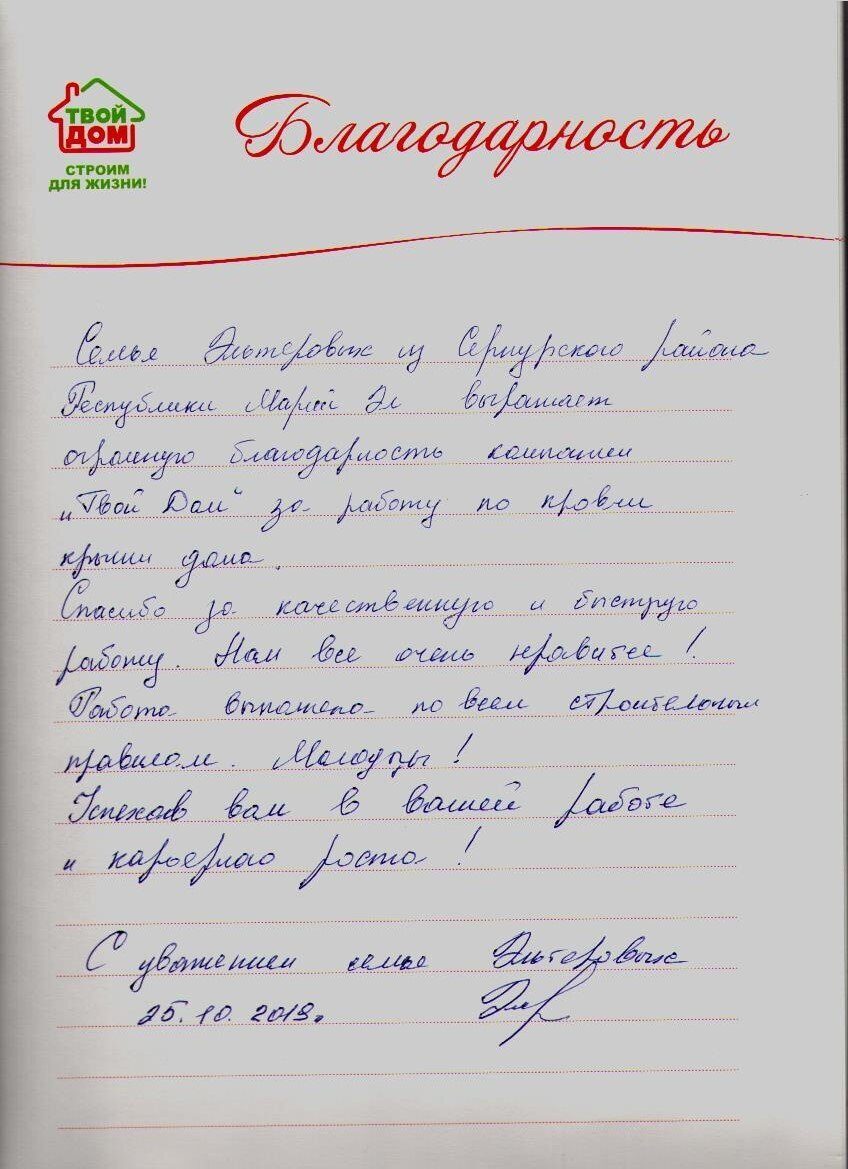 ТВОЙ
ДОМ
СТРОИМ
ДЛЯ ЖИЗНИ!
Благодарность
Семья Эльтеровых из Сернурского района
Республики Марий Эл выражает
огромную благодарность компании
"Твой Дом" за работу по кровли
крыши дома.
Спасибо за качественную и быструю
работу. Нам все очень нравится!
Работа выполнена по всем строительным
правилам. Молодцы!
Успехов вам в вашей работе
и карьерного роста!
С уважением семья Эльтеровых
25.10.2019г